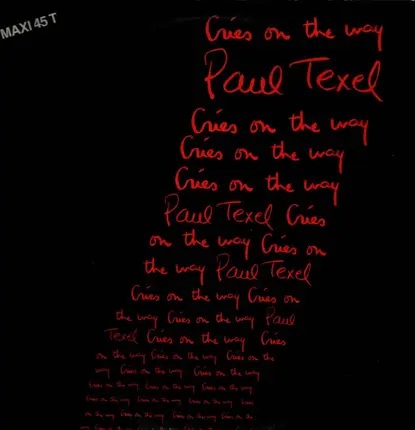 MAXI 45 T
Cries on the way
Paul Texel
Cries on the way
Cries on the way
Cries on the way
Paul Texel Cries
on the way Cries on
the way Paul Texel
Cries on the way Cries on
the way Cries on the way Paul
Texel Cries on the way Cries
on the way Cries on the way Cries on the
way Cries on the way Cries on the way
Cries on the way Cries on the way Cries on the way